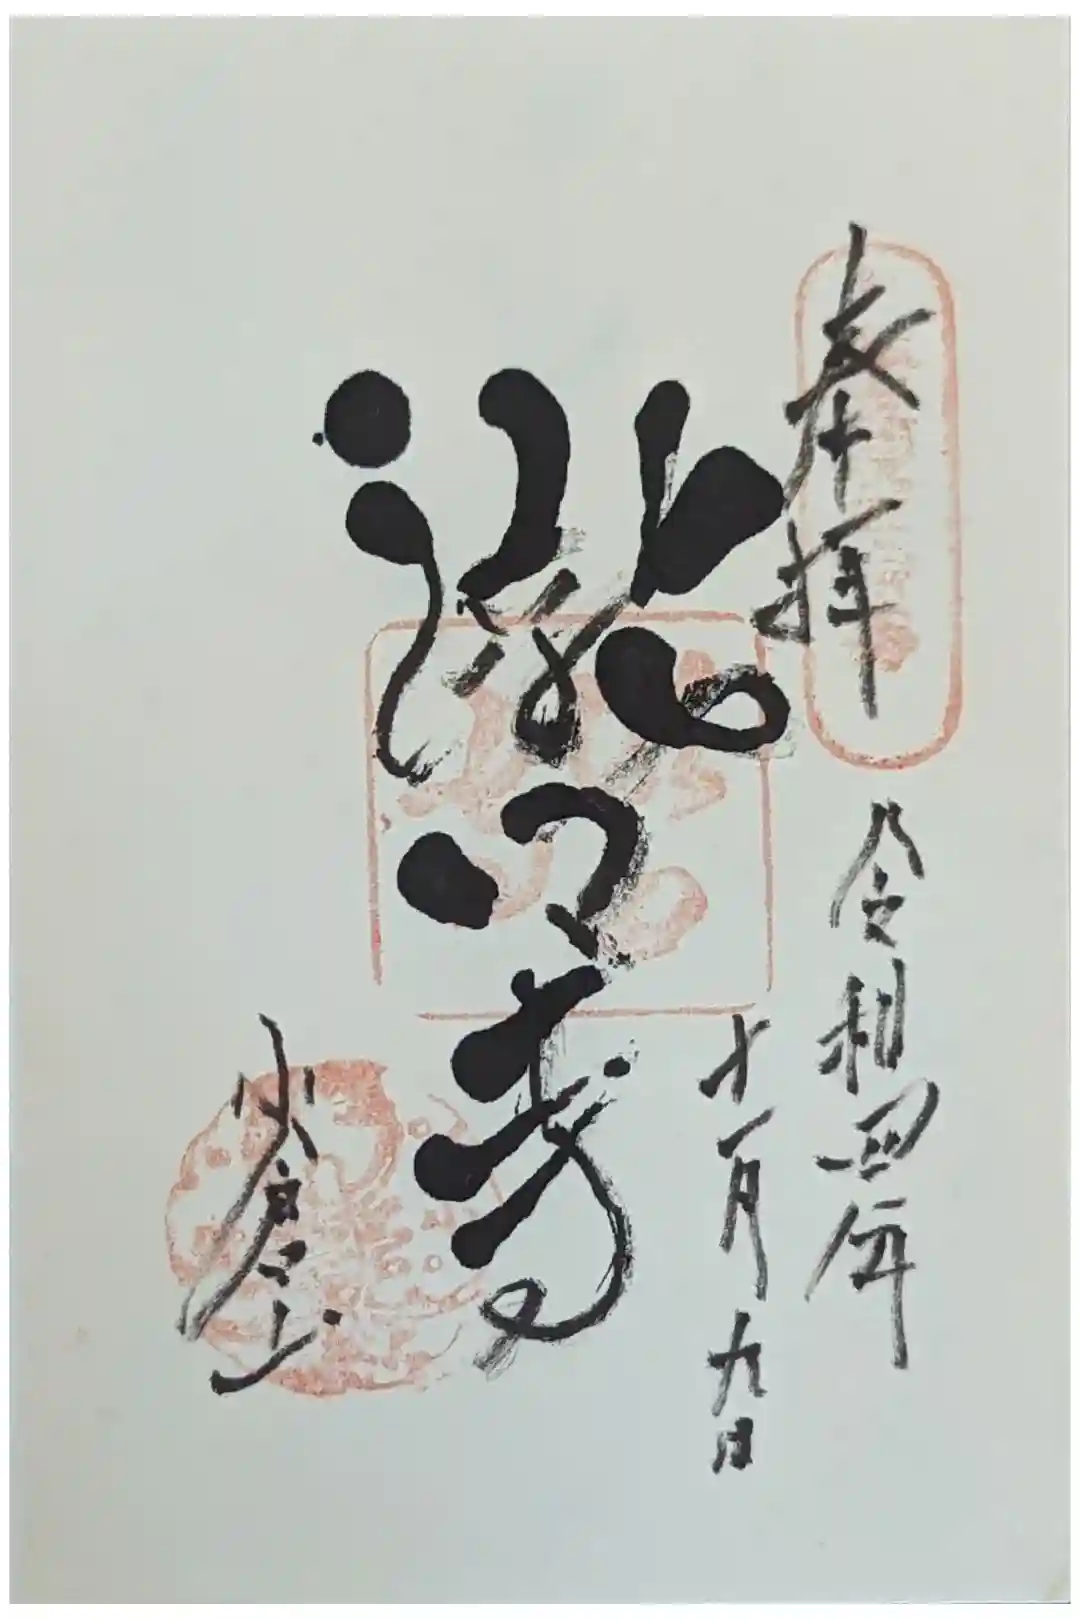 奉拝 令和四年
十一月九日
瀧口寺
小倉山